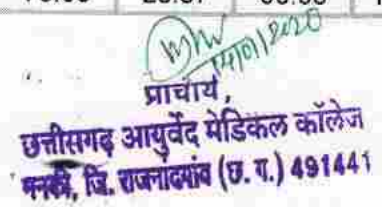 14/01/2020
प्राचार्य,
छत्तीसगढ़ आयुर्वेद मेडिकल कॉलेज
मनकी, जि. राजनांदगांव (छ. ग.) 491441